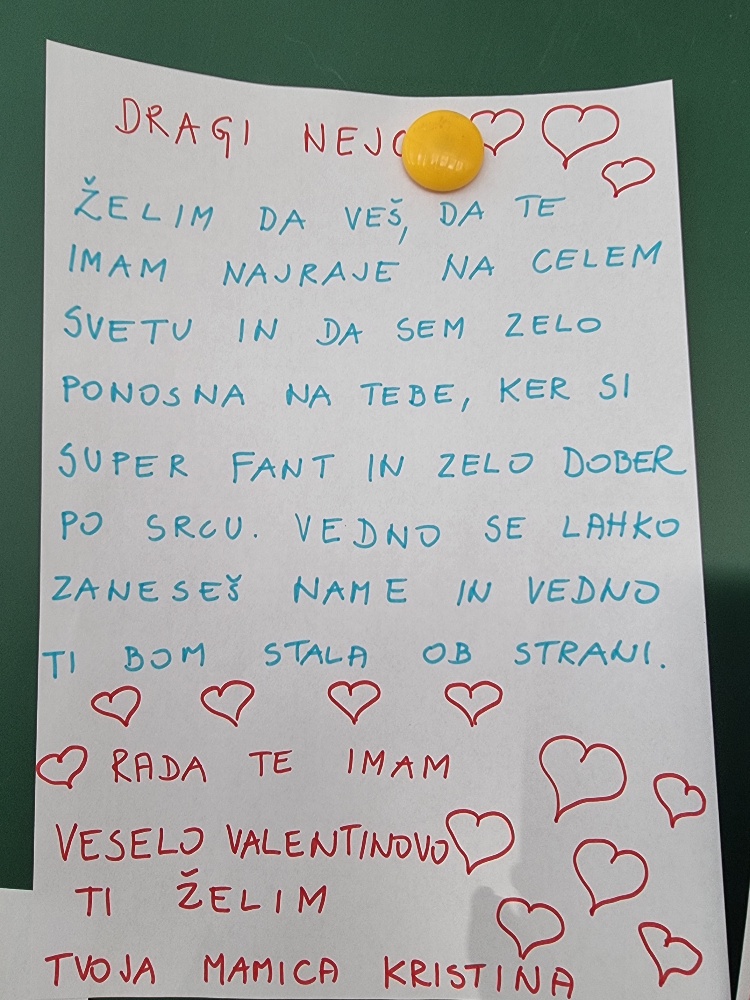 DRAGI
ŽELIM DA VEŠ, DA TE
IMAM NAJRAJE NA CELEM
SVETU IN DA SEM ZELO
PONOSNA NA TEBE, KER SI
SUPER FANT IN ZELO DOBER
PO SRCU. VEDNO SE LAHKO
ZANESEŠ NAME IN VEDNO
TI BOM STALA OB STRANI.
RADA TE IMAM
VESELO VALENTINOVO
TI ŽELIM
TVOJA MAMICA KRISTINA